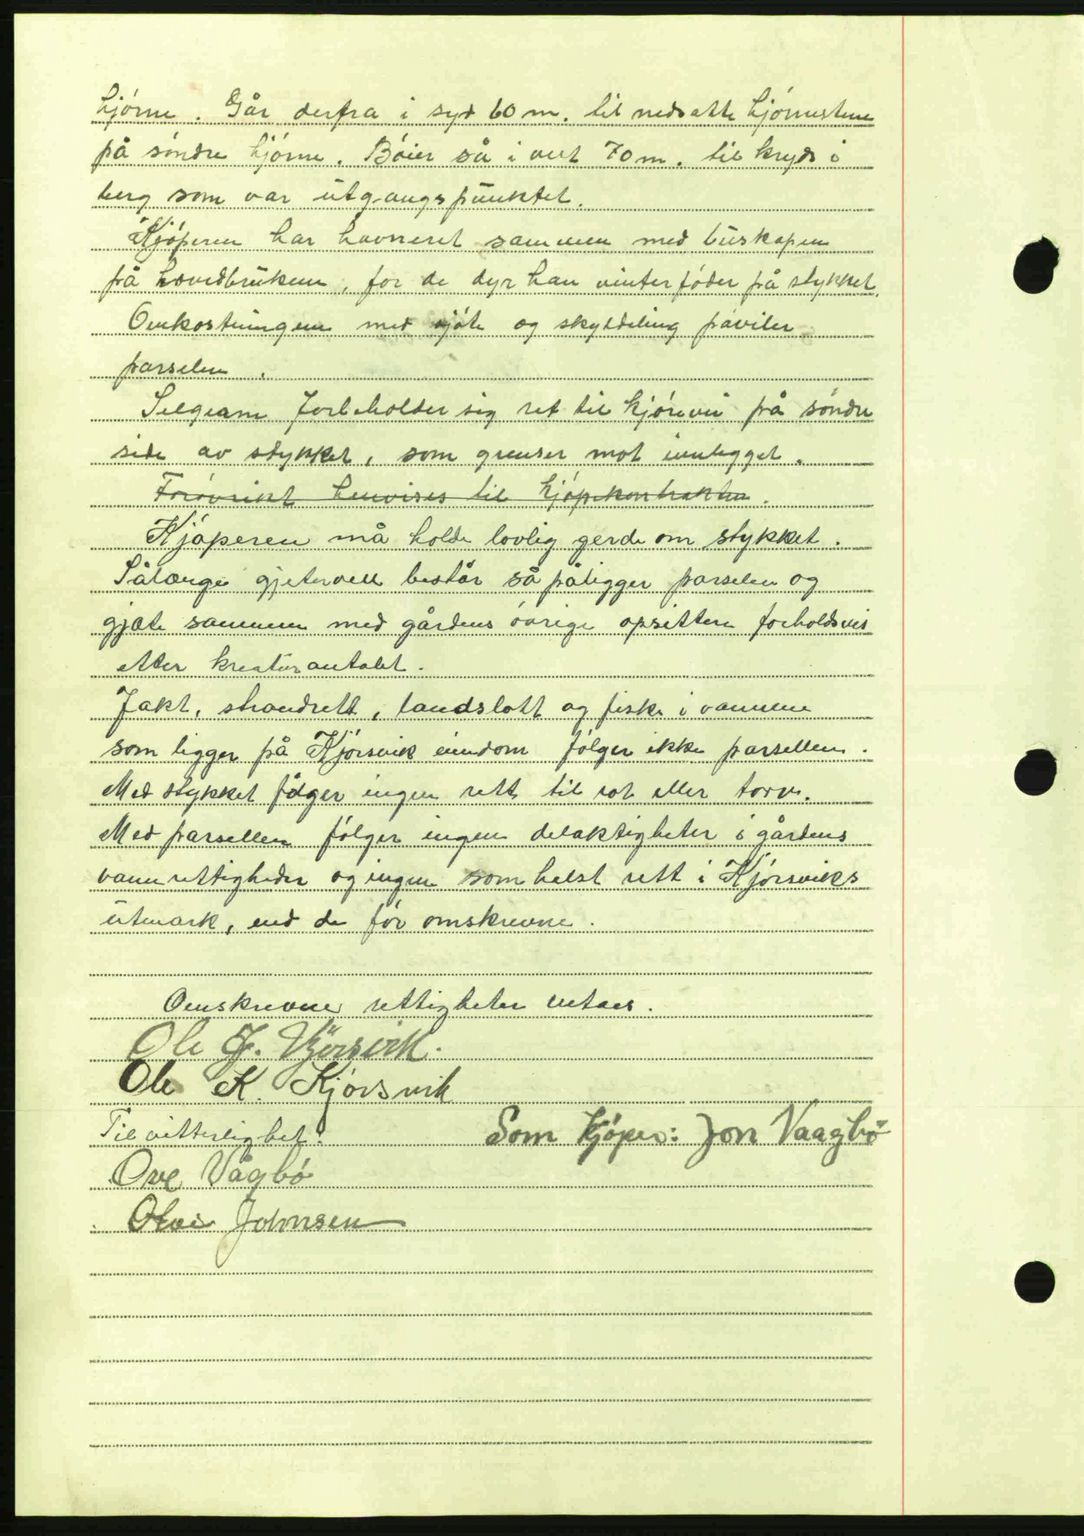 hjórne. Går derfra i syd 60 m. til nedsatte hjórnestene
på sóndre hjórne. Bóier så i vest 70 m. til kryds i
berg som var utgangspunktet.
Kjóperen har havneret sammen med buskapen
på hovedbruken, for de dyr han vinterfóder på stykket.
Omkostningene med sjóte og skylddeling påviler
parselen.
Selgerne forbeholder sig ret til kjórevei på sóndre
side av stykket, som grenser mot innlegget.
Forøvrikt henvises til kjópekontrakten.
Kjóperen må holde lovlig gerde om stykket.
Sålænge gjetervell består så påligger parselen og
gjæte sammen med gårdens óvrige opsittere forholdsvis
etter kreaturantalet.
Jakt, strandrett, landslott og fiske i vannene
som ligger på Kjórsvik eiendom fólger ikke parsellen.
Med stykket fólger ingen rett til rot eller torv.
Med parsellen fólger ingen delaktigheter i gårdens
vannrettigheder og ingen somhelst rett i Kjórsviks
utmark, end de fór omskrevne.
Omskrevne rettigheter vetaes.
Ole J. Kjörsvik.
Ole K. Kjórsvik
Til vitterlighet: Som kjøper: Jon Vaagbø
Ove Vågbó
Olai Johnsen